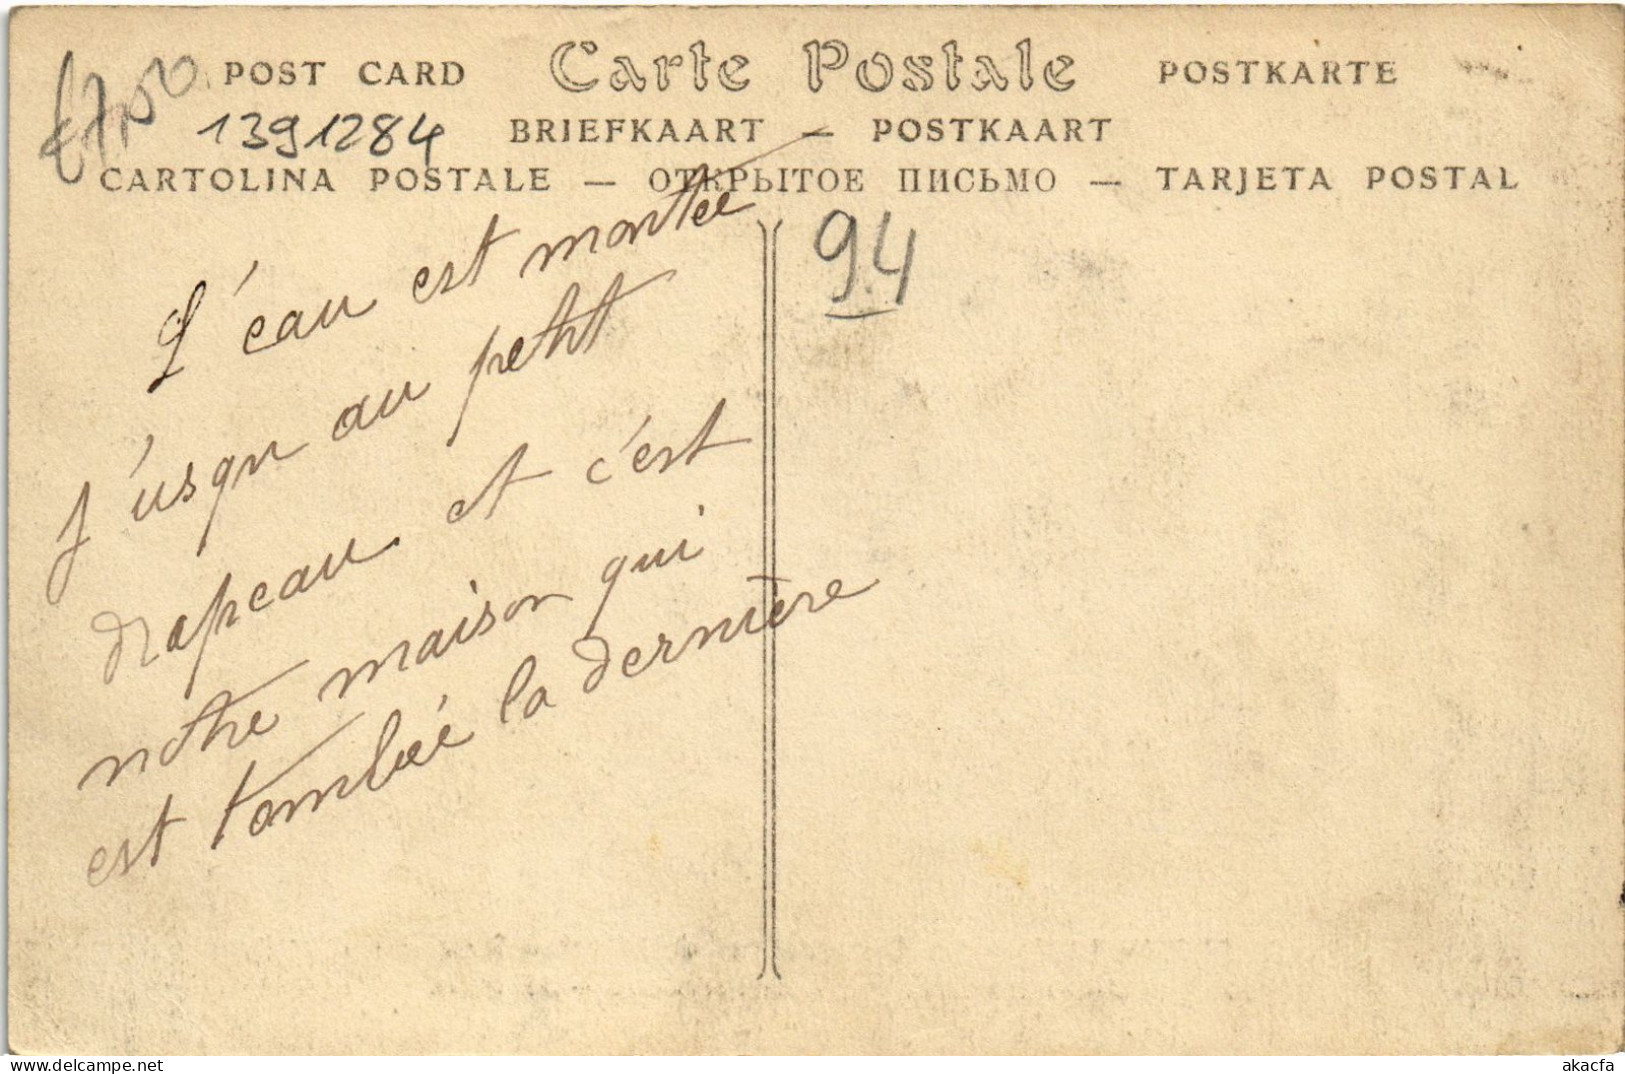 POST CARD Carte Postale POSTKARTE
1391284 BRIEFKAART — POSTKAART
CARTOLINA POSTALE — ОТКРЫТОЕ ПИСЬМО — TARJETA POSTAL
94
L'eau est montée
j'usqu au petit
drapeau et c'est
notre maison qui
est tombée la dernière
www.delcampe.net
akacfa